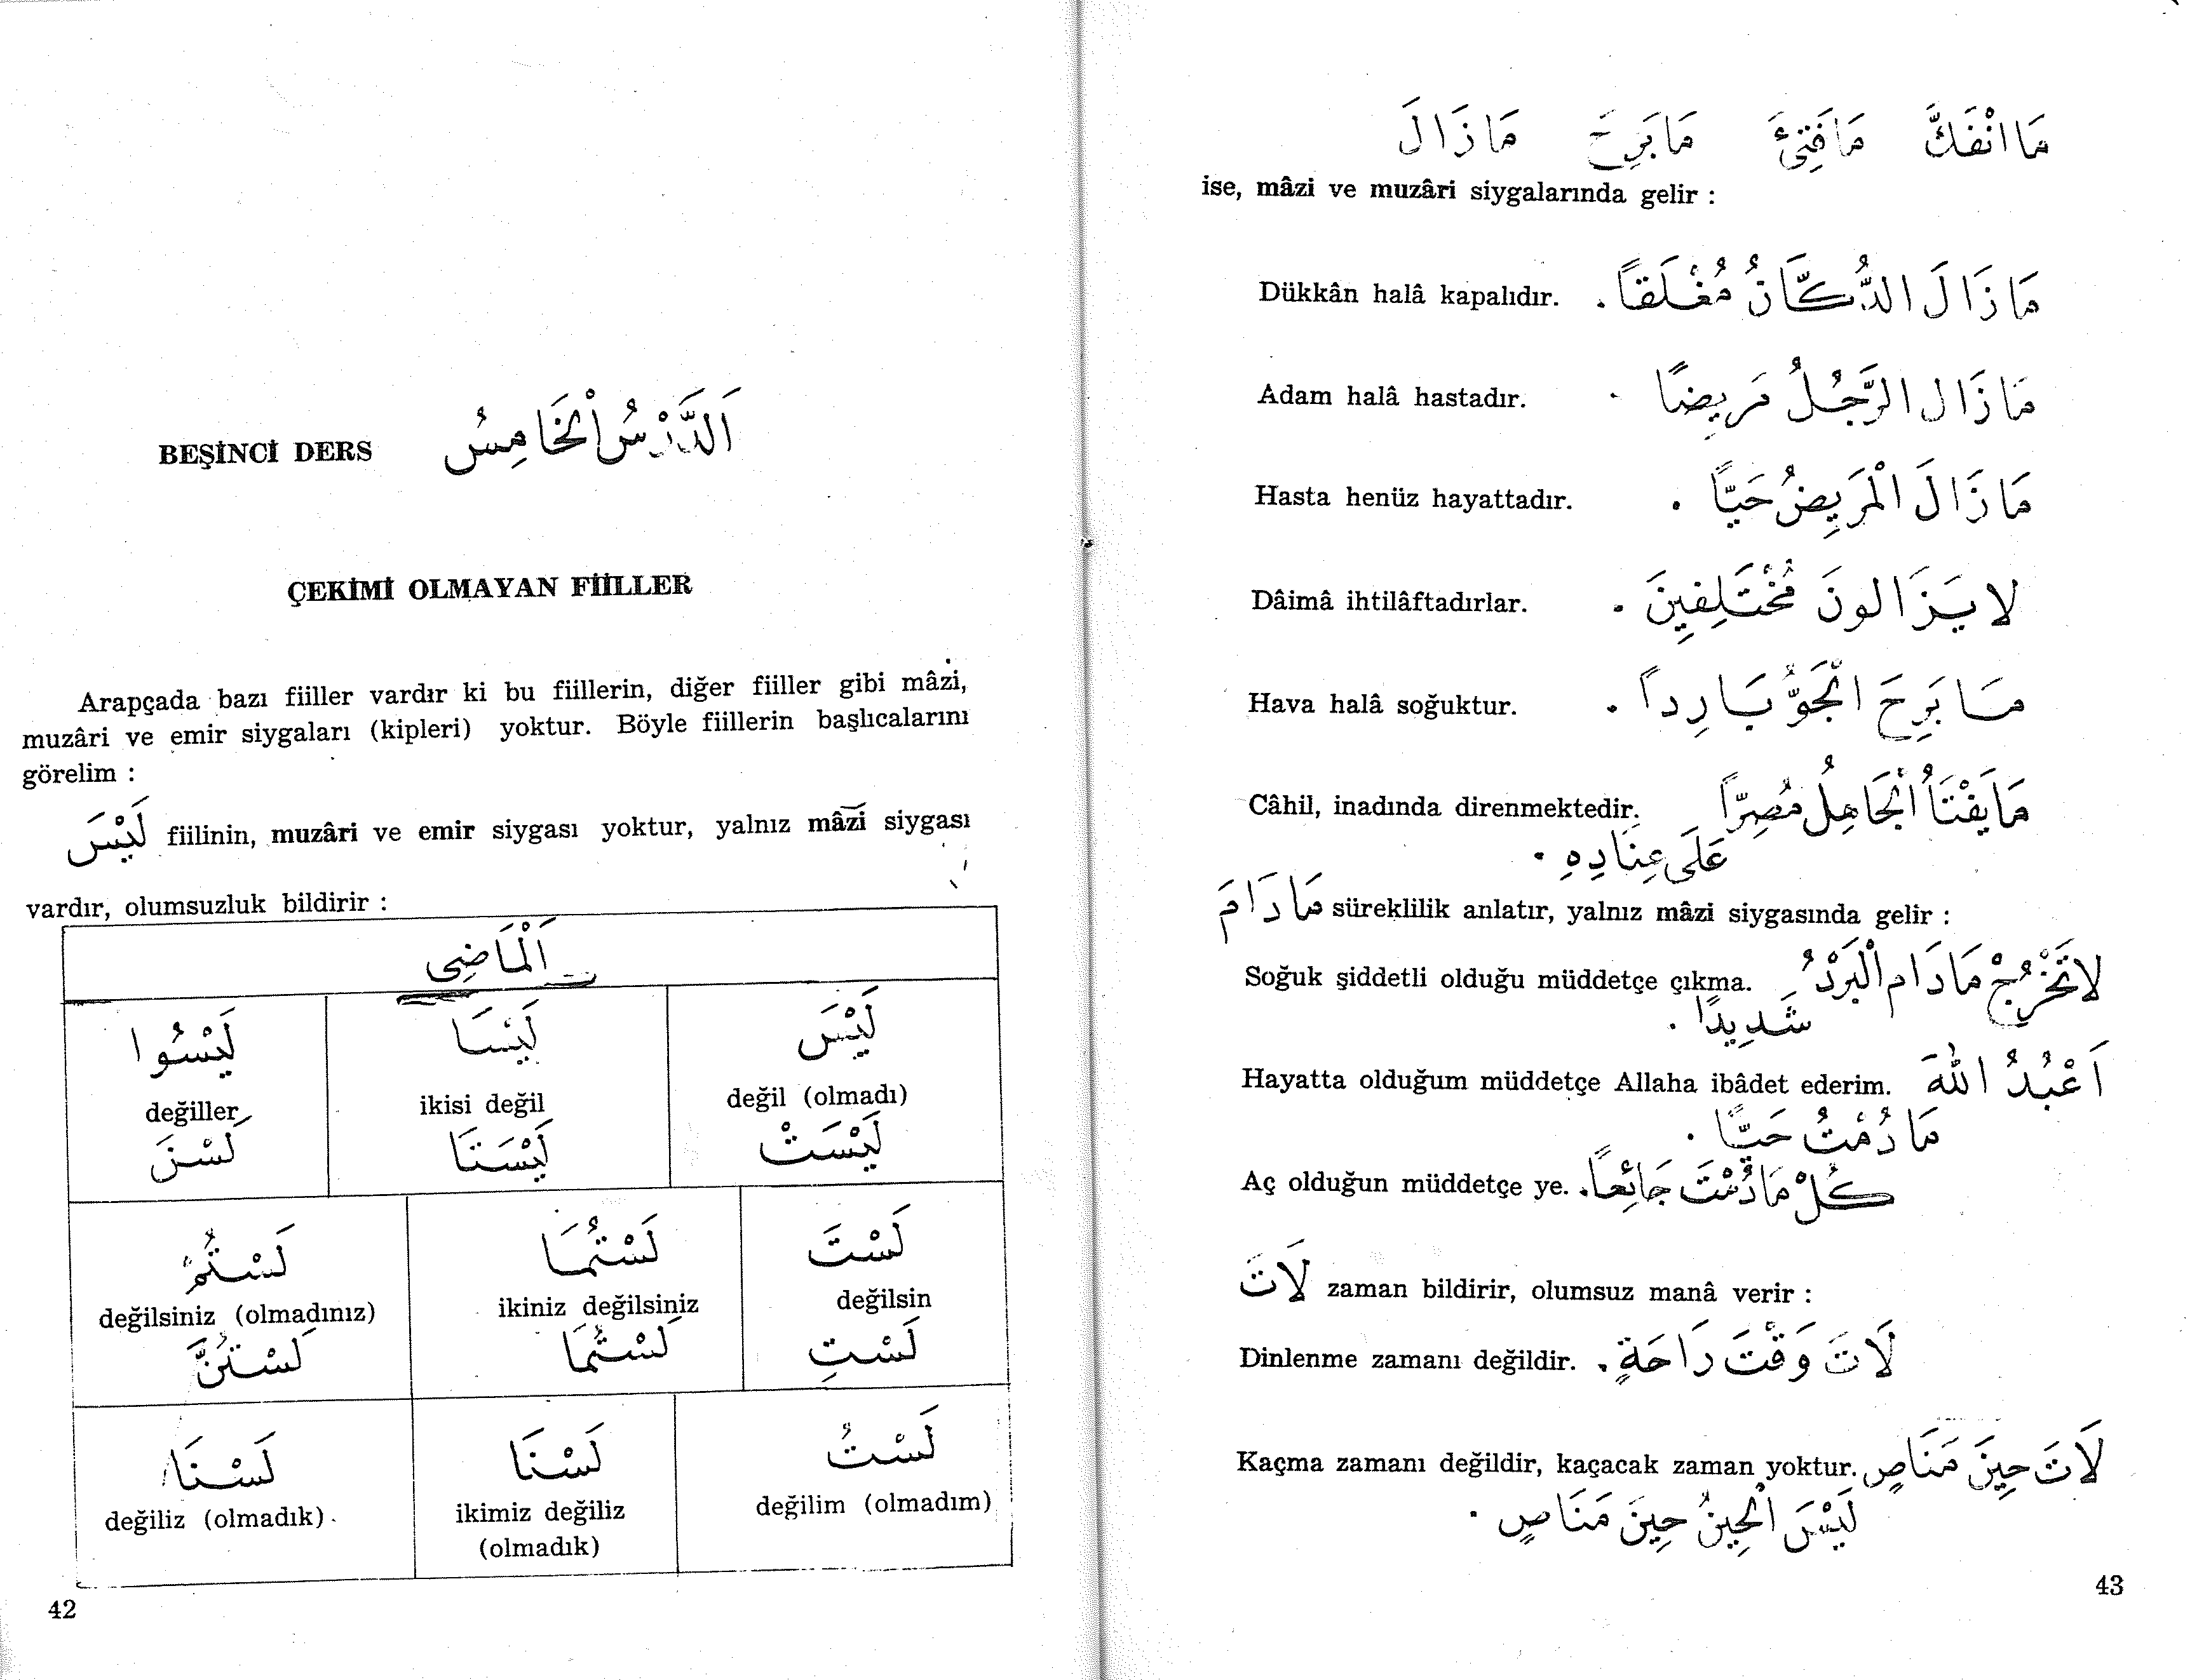 BEŞİNCİ DERS اَلدَّرْسُ الْخَامِسُ
ÇEKİMİ OLMAYAN FİİLLER
Arapçada bazı fiiller vardır ki bu fiillerin, diğer fiiller gibi mâzi,
muzâri ve emir siygaları (kipleri) yoktur. Böyle fiillerin başlıcalarını
görelim :
لَيْسَ fiilinin, muzâri ve emir siygası yoktur, yalnız mâzi siygası
vardır, olumsuzluk bildirir :
اَلْمَاضِى
لَيْسُوا لَيْسَا لَيْسَ
değiller ikisi değil değil (olmadı)
لَسْنَ لَيْسَتَا لَيْسَتْ
لَسْتُمْ لَسْتُمَا لَسْتَ
değilsiniz (olmadınız) ikiniz değilsiniz değilsin
لَسْتُنَّ لَسْتُمَا لَسْتِ
لَسْنَا لَسْنَا لَسْتُ
değiliz (olmadık) ikimiz değiliz değilim (olmadım)
(olmadık)
42
مَا انْفَكَّ مَا فَتِئَ مَا بَرِحَ مَا زَالَ
ise, mâzi ve muzâri siygalarında gelir :
Dükkân halâ kapalıdır. مَا زَالَ الدُّكَّانُ مُغْلَقاً .
Adam halâ hastadır. مَا زَال الرَّجُلُ مَرِيضًا .
Hasta henüz hayattadır. مَا زَالَ الْمَرِيضُ حَيًّا .
Dâimâ ihtilâftadırlar. لا يَزَالونَ مُخْتَلِفِينَ .
Hava halâ soğuktur. مَا بَرِحَ الْجَوُّ بَارِداً .
Câhil, inadında direnmektedir. مَا يَفْتَأُ الْجَاهِلُ مُصِرًّا
عَلَى عِنَادِهِ .
مَا دَامَ süreklilik anlatır, yalnız mâzi siygasında gelir :
Soğuk şiddetli olduğu müddetçe çıkma. لَا تَخْرُجْ مَا دَام الْبَرْدُ
شَدِيدًا .
Hayatta olduğum müddetçe Allaha ibâdet ederim. اَعْبُدُ اللّٰهَ
مَا دُمْتُ حَيًّا .
Aç olduğun müddetçe ye. كُلْ مَا دُمْتَ جَائِعاً.
لَاتَ zaman bildirir, olumsuz manâ verir :
Dinlenme zamanı değildir. لَاتَ وَقْتَ رَاحَةٍ .
Kaçma zamanı değildir, kaçacak zaman yoktur. لَاتَ حِينَ مَنَاصٍ
لَيْسَ الْحِينُ حِينَ مَنَاصٍ .
43